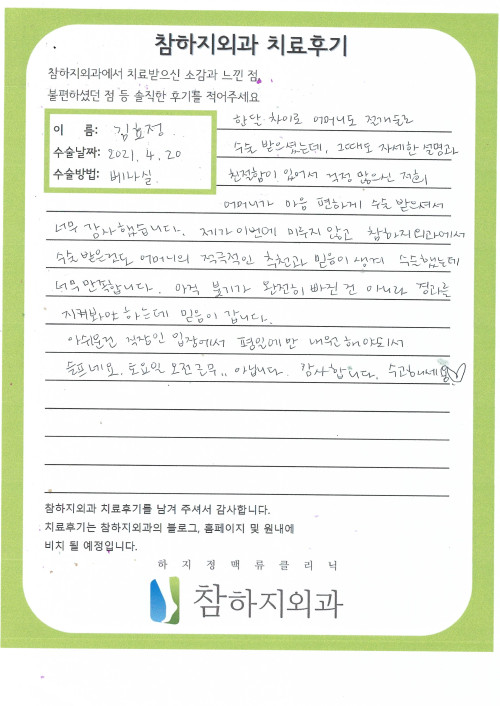 참하지외과 치료후기
참하지외과에서 치료받으신 소감과 느낀 점,
불편하셨던 점 등 솔직한 후기를 적어주세요
이 름: 김효정
수술날짜: 2021. 4. 20
수술방법: 베나실
한달 차이로 어머니도
수술 받으셨는데, 그때도 자세한 설명과
친절함이 있어서 걱정 많으신 저희
어머니가 마음 편하게 수술 받으셔서
너무 감사했습니다. 제가 이번에 미루지 않고 참하지외과에서
수술 받은것도 어머니의 적극적인 추천과 믿음이 생겨 수술했는데
너무 만족합니다. 아직 붓기가 완전히 빠진 건 아니라 경과를
지켜봐야 하는데 믿음이 갑니다.
아쉬운건 직장인 입장에서 평일에만 내원해야되서
슬프네요. 토요일 오전근무.. 아닙니다. 감사합니다. 수고하세용♡
참하지외과 치료후기를 남겨 주셔서 감사합니다.
치료후기는 참하지외과의 블로그, 홈페이지 및 원내에
비치 될 예정입니다.
하지정맥류클리닉
참하지외과